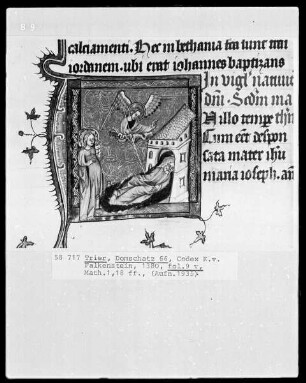 calciamenti. Hec in bethania facta sunt trans
iordanem. ubi erat iohannes baptizans
In vigl natiuit
dnı. Scdm ma
In illo tempe
Cum eet despon
sata mater ihu
maria ioseph. an
58 717 Trier, Domschatz 66, Codex K.v.
Falkenstein, 1380, fol.9 v,
Math.1,18 ff., (Aufn.1935)